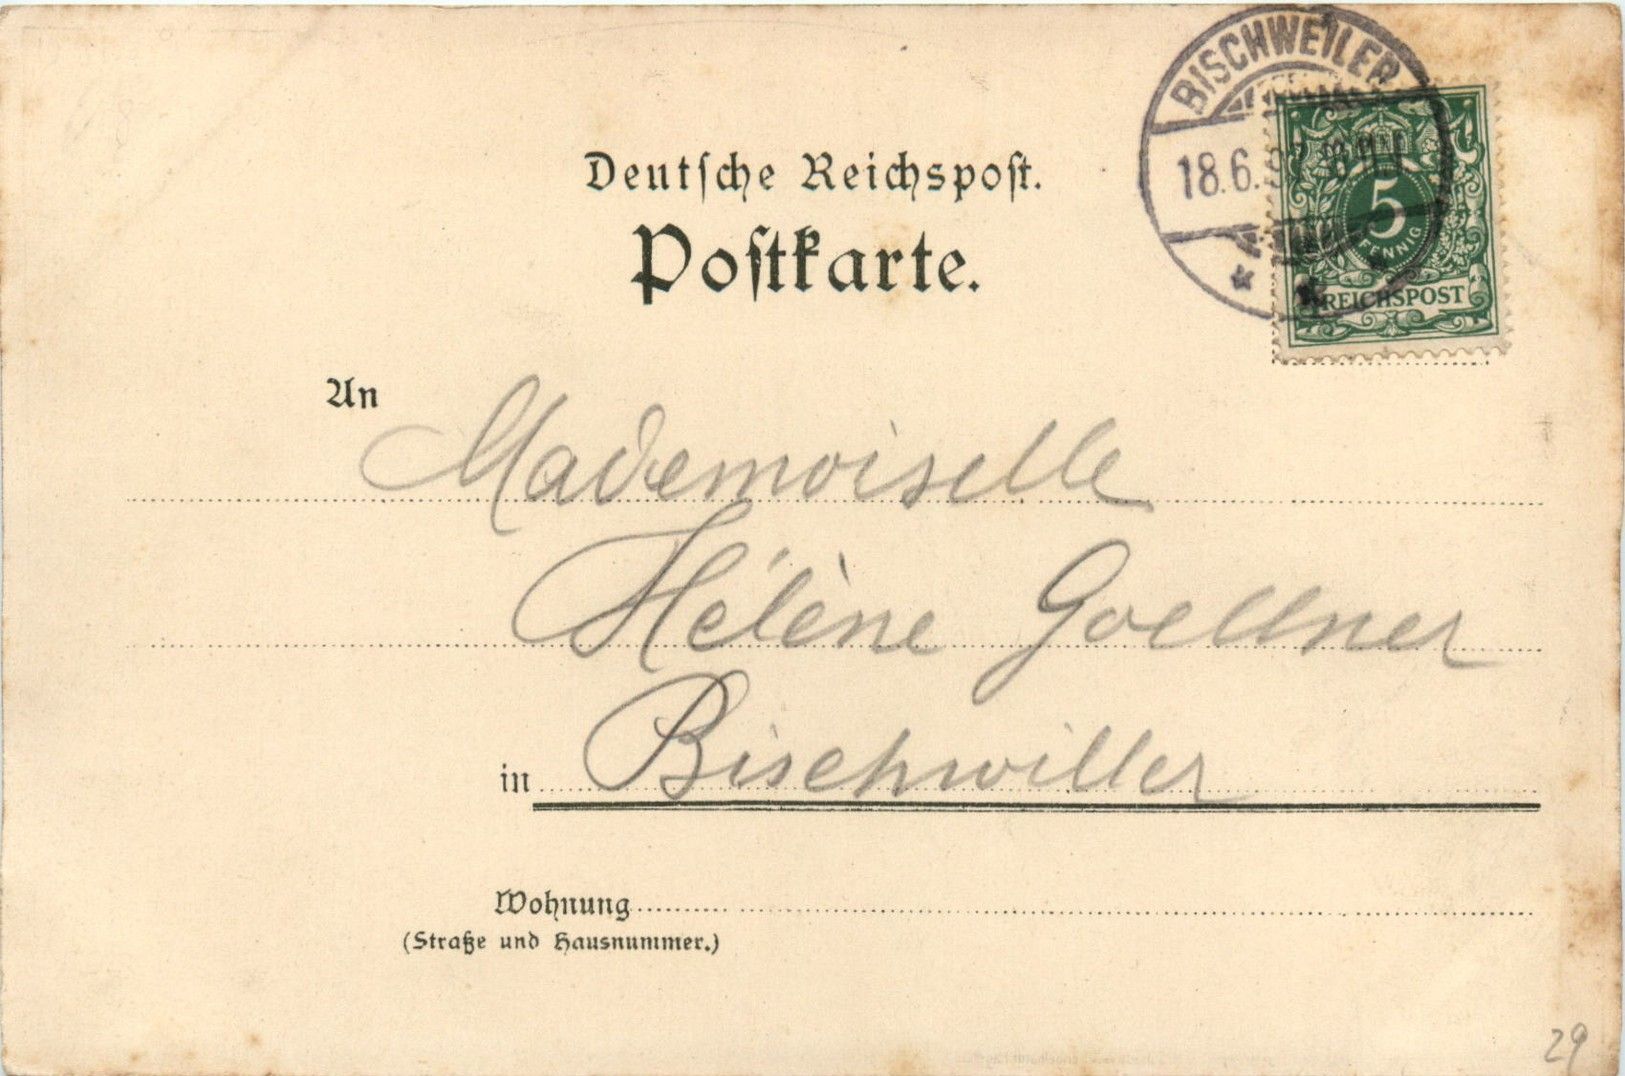 BISCHWEILER
18.6.97
5
PFENNIG
REICHSPOST
Deutſche Reichspoſt.
Poſtkarte.
An
Mademoiselle
Hélène Goellner
in Bischwiller
Wohnung
(Straße und Hausnummer.)
29